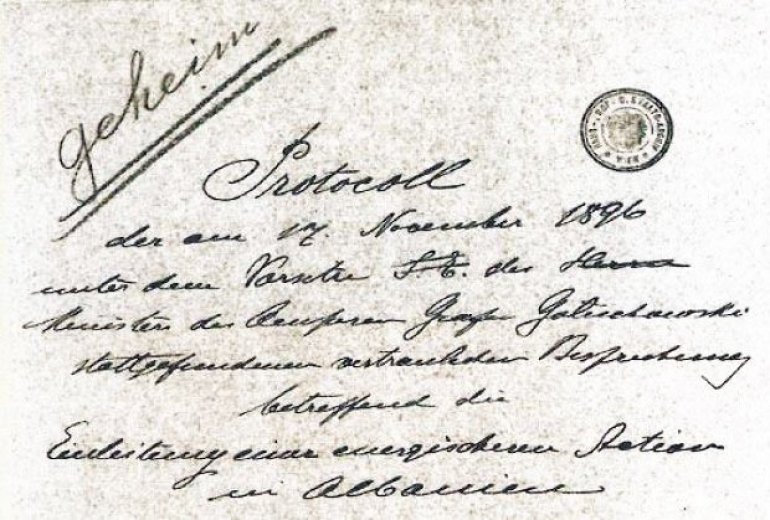 geheim
Protocoll
der am 17. November 1896
unter dem Vorsitze S. E. des Herrn
Ministers des Aeusseren Grafen Goluchowski
stattgefundenen vertraulichen Besprechung
betreffend die
Einleitung einer energischeren Action
in Albanien